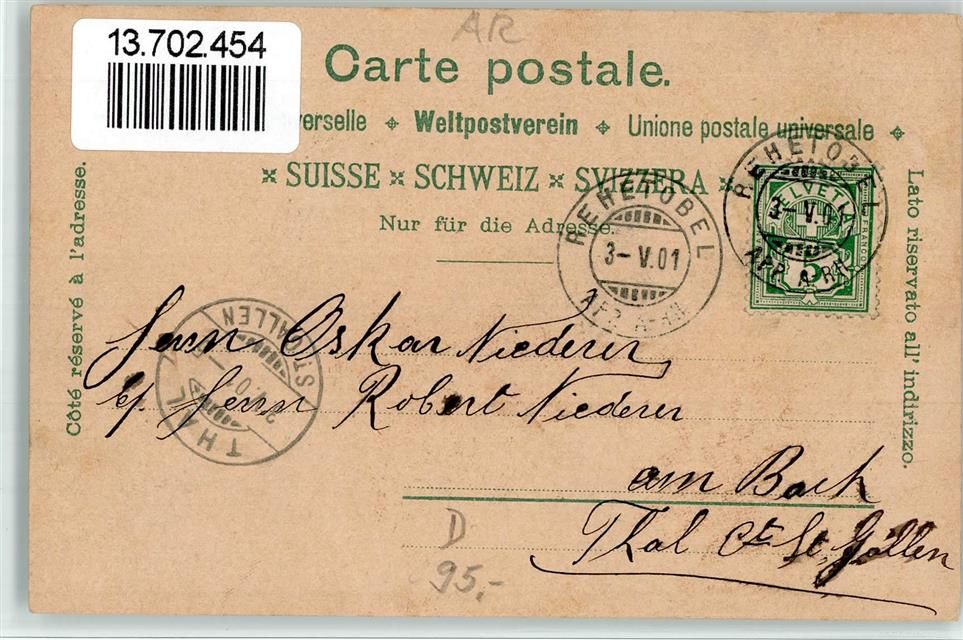 AR
13.702.454
Carte postale.
verselle ⌖ Weltpostverein ⌖ Unione postale universale ⌖
SUISSE SCHWEIZ SVIZZERA
Nur für die Adresse.
Côté réservé à l'adresse.
Lato riservato all' indirizzo.
REHETOBEL
3-V.01
APP. A. RH.
REHETOBEL
3-V.01
APP. A. RH.
HELVETIA
FRANCO
THAL
V.01
ST. GALLEN
Herrn Oskar Niederer
Herrn Robert Niederer
am Bach
Thal Ct. St. Gallen
D
95.-